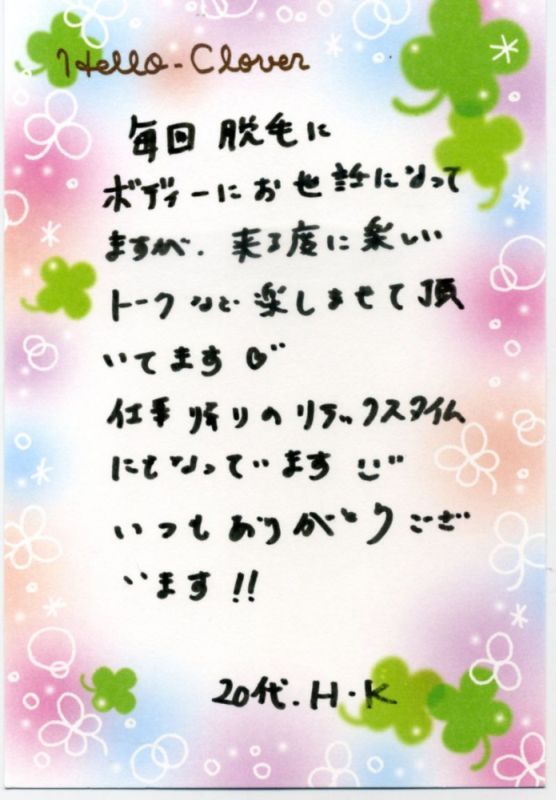 Hello-Clover
毎回 脱毛に
ボディーにお世話になって
ますが、来る度に楽しい
トークなど楽しませて頂
いてます♡
仕事帰りのリラックスタイム
にもなっています
いつもありがとうござ
います!!
20代.H・K